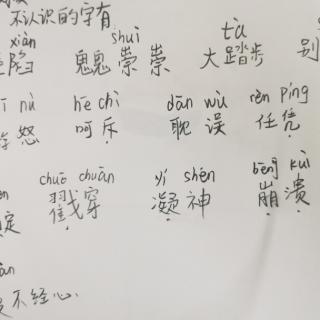 不认识的字有
xiàn shuì tà
陷 鬼鬼祟祟 大踏步 别
nù hē chì dān wù rèn píng
怒 呵斥 耽误 任凭
chuō chuān yí shén bēng kuì
戳穿 凝神 崩溃
不经心.